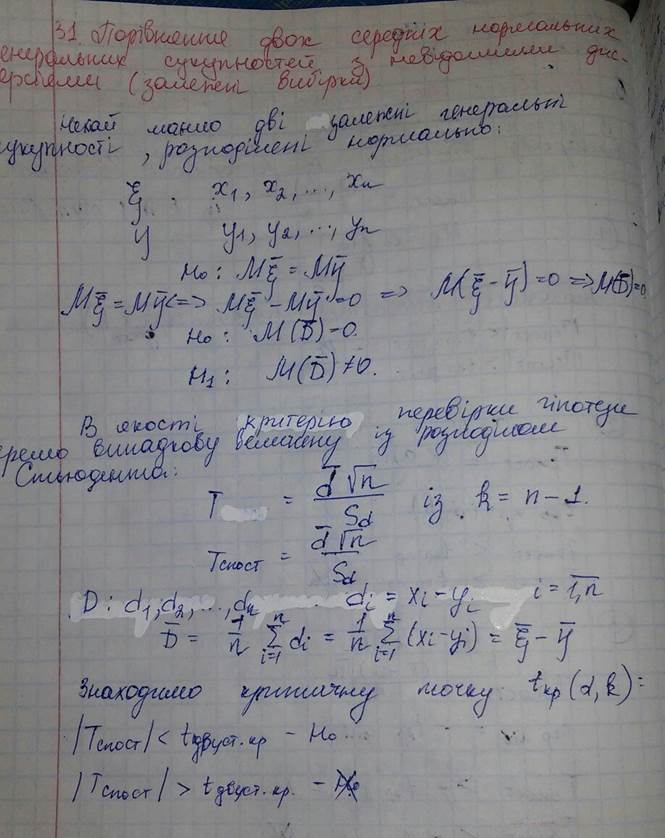 31. Порівняння двох середніх нормальних
генеральних сукупностей з невідомими дис-
персіями (залежні вибірки)
Нехай маємо дві залежні генеральні
сукупності, розподілені нормально:
ξ x₁, x₂, ..., xₙ
y y₁, y₂, ..., yₙ
H₀: Mξ̄ = Mȳ
Mξ̄ = Mȳ <=> Mξ̄ - Mȳ = 0 => M(ξ̄ - ȳ) = 0 => M(D̄) = 0
H₀: M(D̄) = 0
H₁: M(D̄) ≠ 0.
В якості критерію перевірки гіпотези
беремо випадкову величину із розподілом
Стьюдента:
T = d̄√n / S_d із k = n - 1.
Tспост = d̄√n / S_d
D: d₁, d₂, ..., dₙ dᵢ = xᵢ - yᵢ i = 1,n
D̄ = 1/n ∑ᵢ₌₁ⁿ dᵢ = 1/n ∑ᵢ₌₁ⁿ (xᵢ - yᵢ) = ξ̄ - ȳ
Знаходимо критичну точку tкр(α, k) =
|Tспост| < tдвуст.кр - H₀
|Tспост| > tдвуст.кр. - H₀